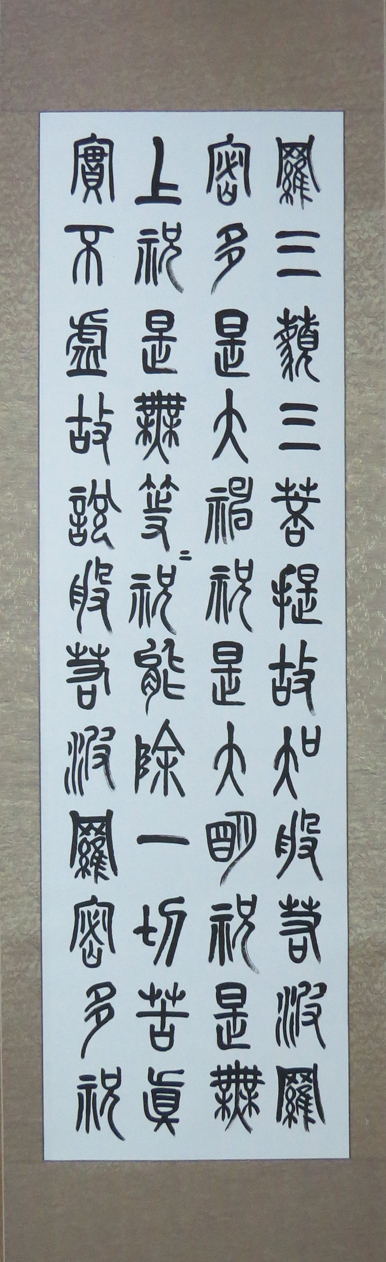 羅三藐三菩提故知般若波羅
密多是大神祝是大明祝是無
上祝是無等〻祝能除一切苦真
實不虛故說般若波羅密多祝